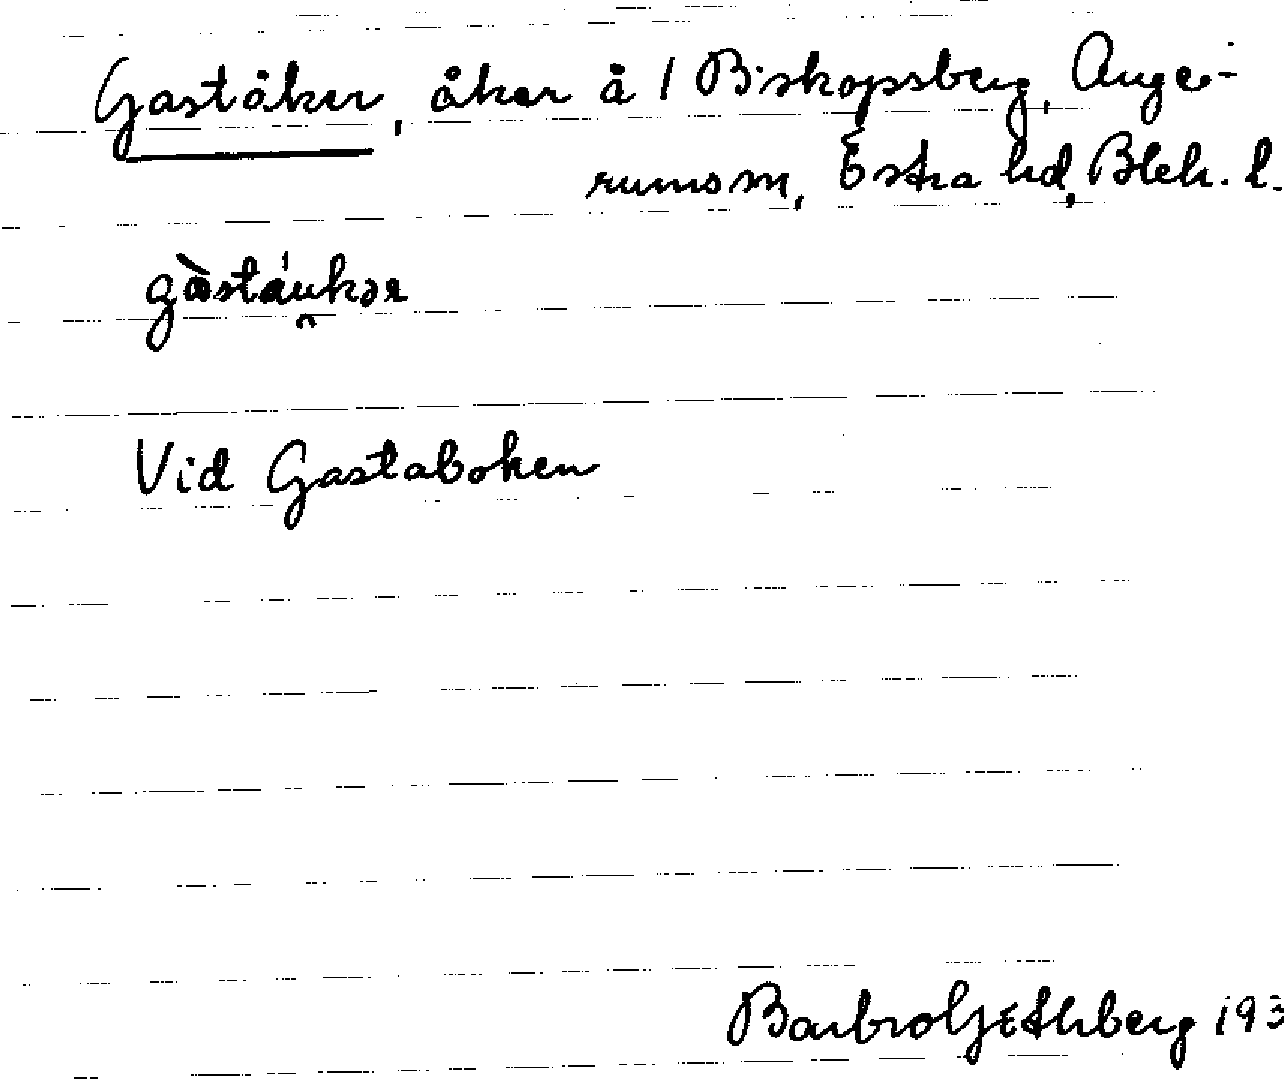 Gaståker, åker å 1 Biskopsberg, Auge-
rums sn, Östra hd, Blek. l.
gàstáu̯kər
Vid Gastaboken
Barbro Göthberg 193